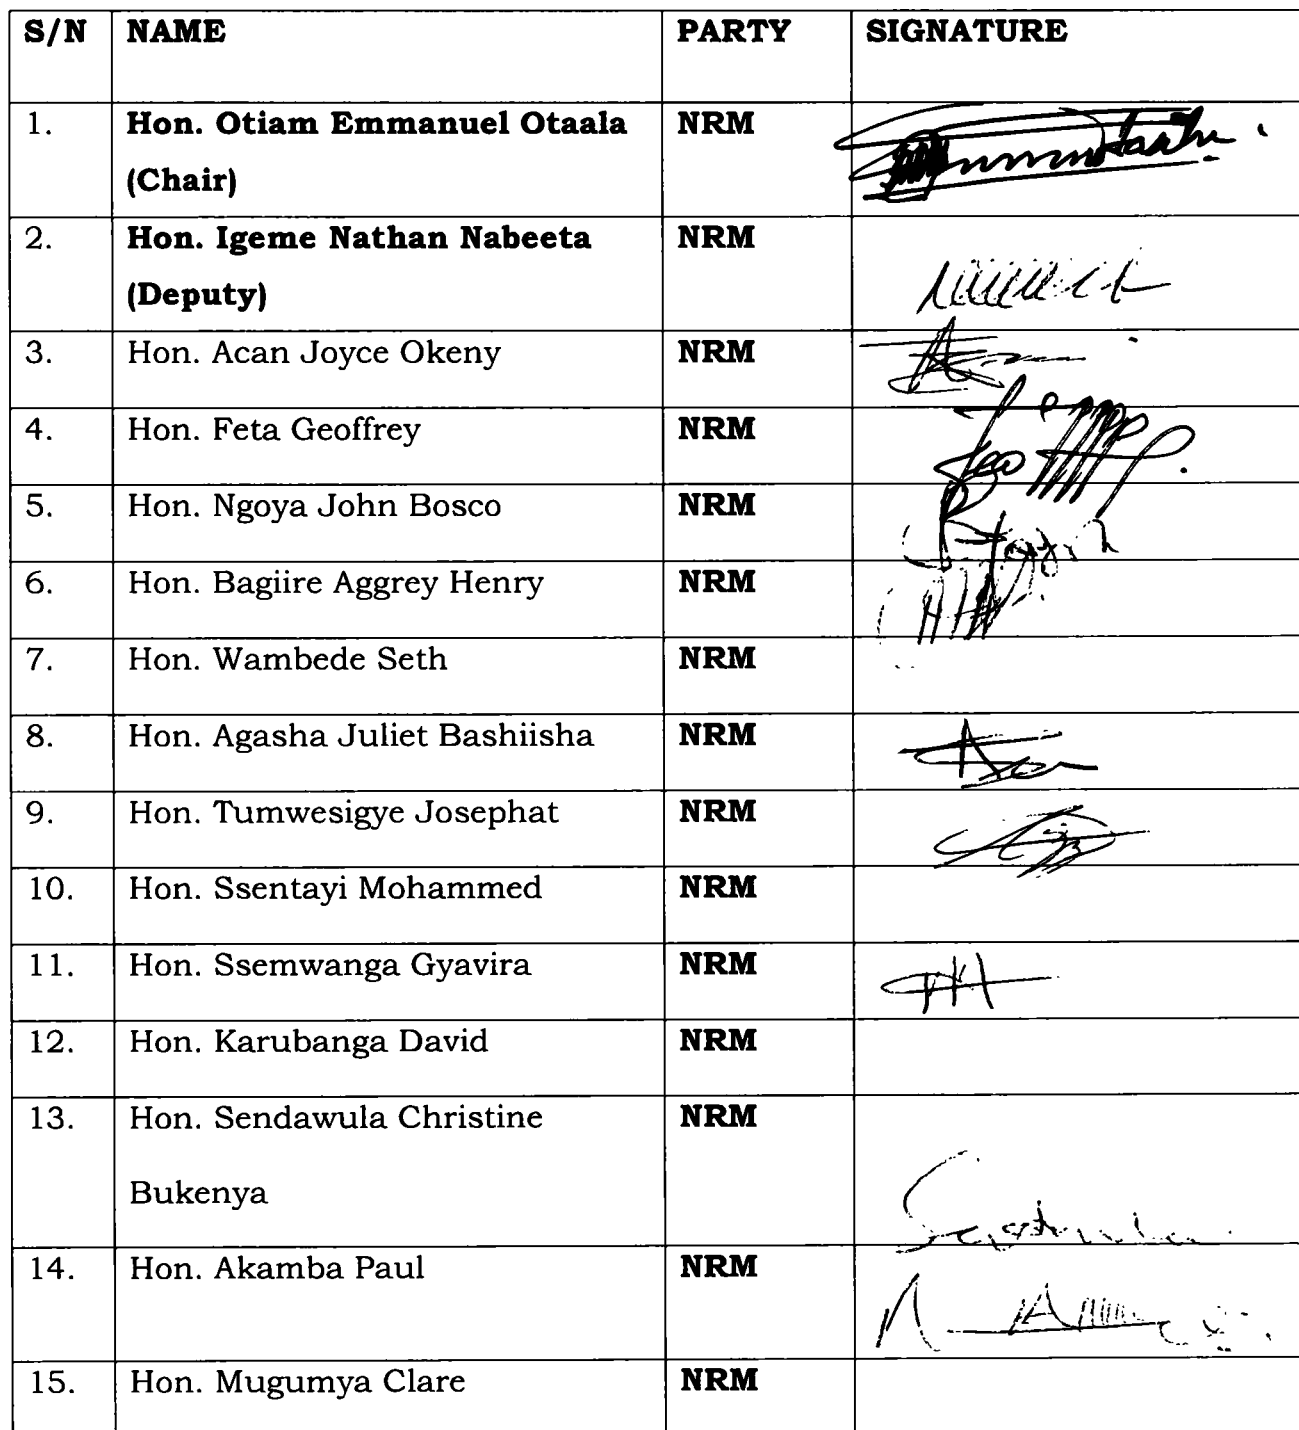 S/N NAME PARTY SIGNATURE
1. Hon. Otiam Emmanuel Otaala NRM
(Chair)
2. Hon. Igeme Nathan Nabeeta NRM
(Deputy)
3. Hon. Acan Joyce Okeny NRM
4. Hon. Feta Geoffrey NRM
5. Hon. Ngoya John Bosco NRM
6. Hon. Bagiire Aggrey Henry NRM
7. Hon. Wambede Seth NRM
8. Hon. Agasha Juliet Bashiisha NRM
9. Hon. Tumwesigye Josephat NRM
10. Hon. Ssentayi Mohammed NRM
11. Hon. Ssemwanga Gyavira NRM
12. Hon. Karubanga David NRM
13. Hon. Sendawula Christine NRM
Bukenya
14. Hon. Akamba Paul NRM
15. Hon. Mugumya Clare NRM